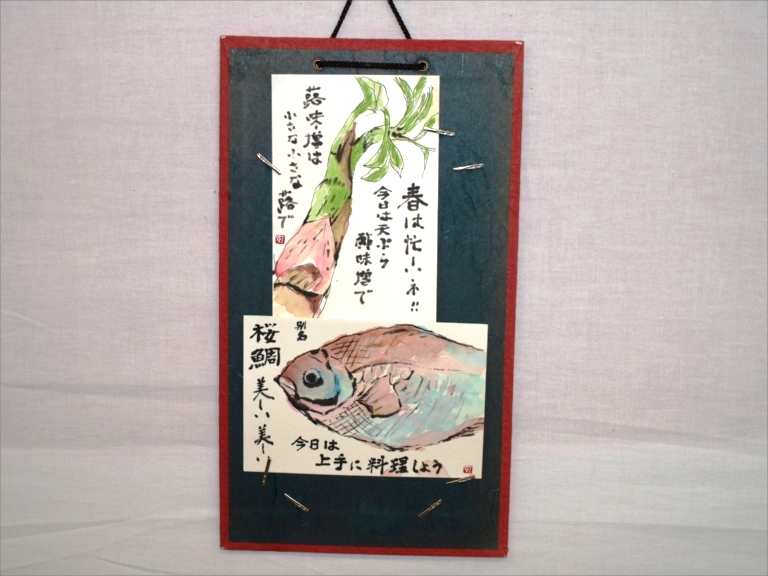 春は忙しいネ!!
今日は天ぷら
酢味噌で
蕗味噌は
小さな小さな
蕗で
別名
桜鯛
美しい美しい
今日は
上手に料理しよう